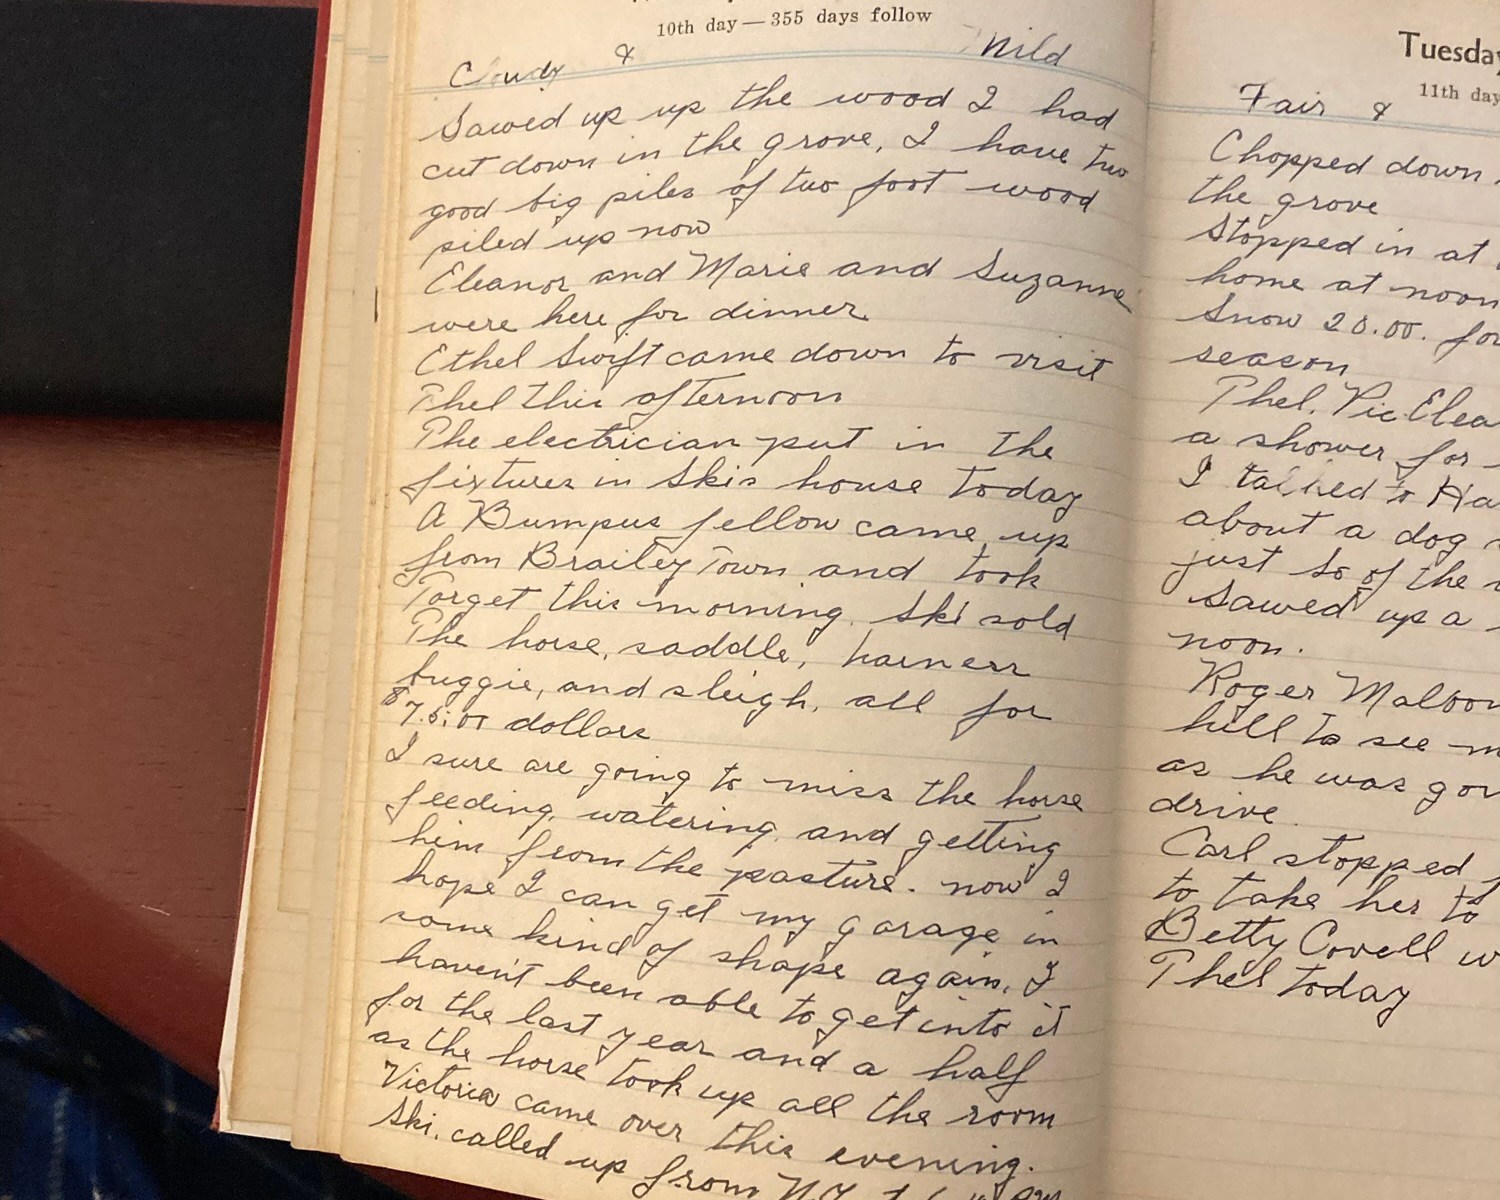 10th day — 355 days follow
Cloudy & Mild
Sawed up up the wood I had
cut down in the grove, I have two
good big piles of two foot wood
piled up now
Eleanor and Marie and Suzanne
were here for dinner
Ethel Swift came down to visit
Thel this afternoon
The electrician put in the
fixtures in Skis house today
A Bumpus fellow came up
from Brailey Town and took
Torget this morning. Ski sold
The horse, saddle, harness
buggie, and sleigh, all for
$75.00 dollars
I sure are going to miss the horse
feeding, watering, and getting
him from the pasture. now I
hope I can get my garage in
some kind of shape again, I
haven't been able to get into it
for the last year and a half
as the horse took up all the room
Victoria came over this evening.
Ski. called up from N.Y.
Tuesday
11th day
Fair &
Chopped down
the grove
Stopped in at
home at noon
Snow 20.00. for
season
Thel. Vic. Elea
a shower for
I talked to Ha
about a dog
just so of the
Sawed up a
noon.
Roger Maloon
hill to see m
as he was goi
drive.
Carl stopped
to take her to
Betty Covell w
Thel today